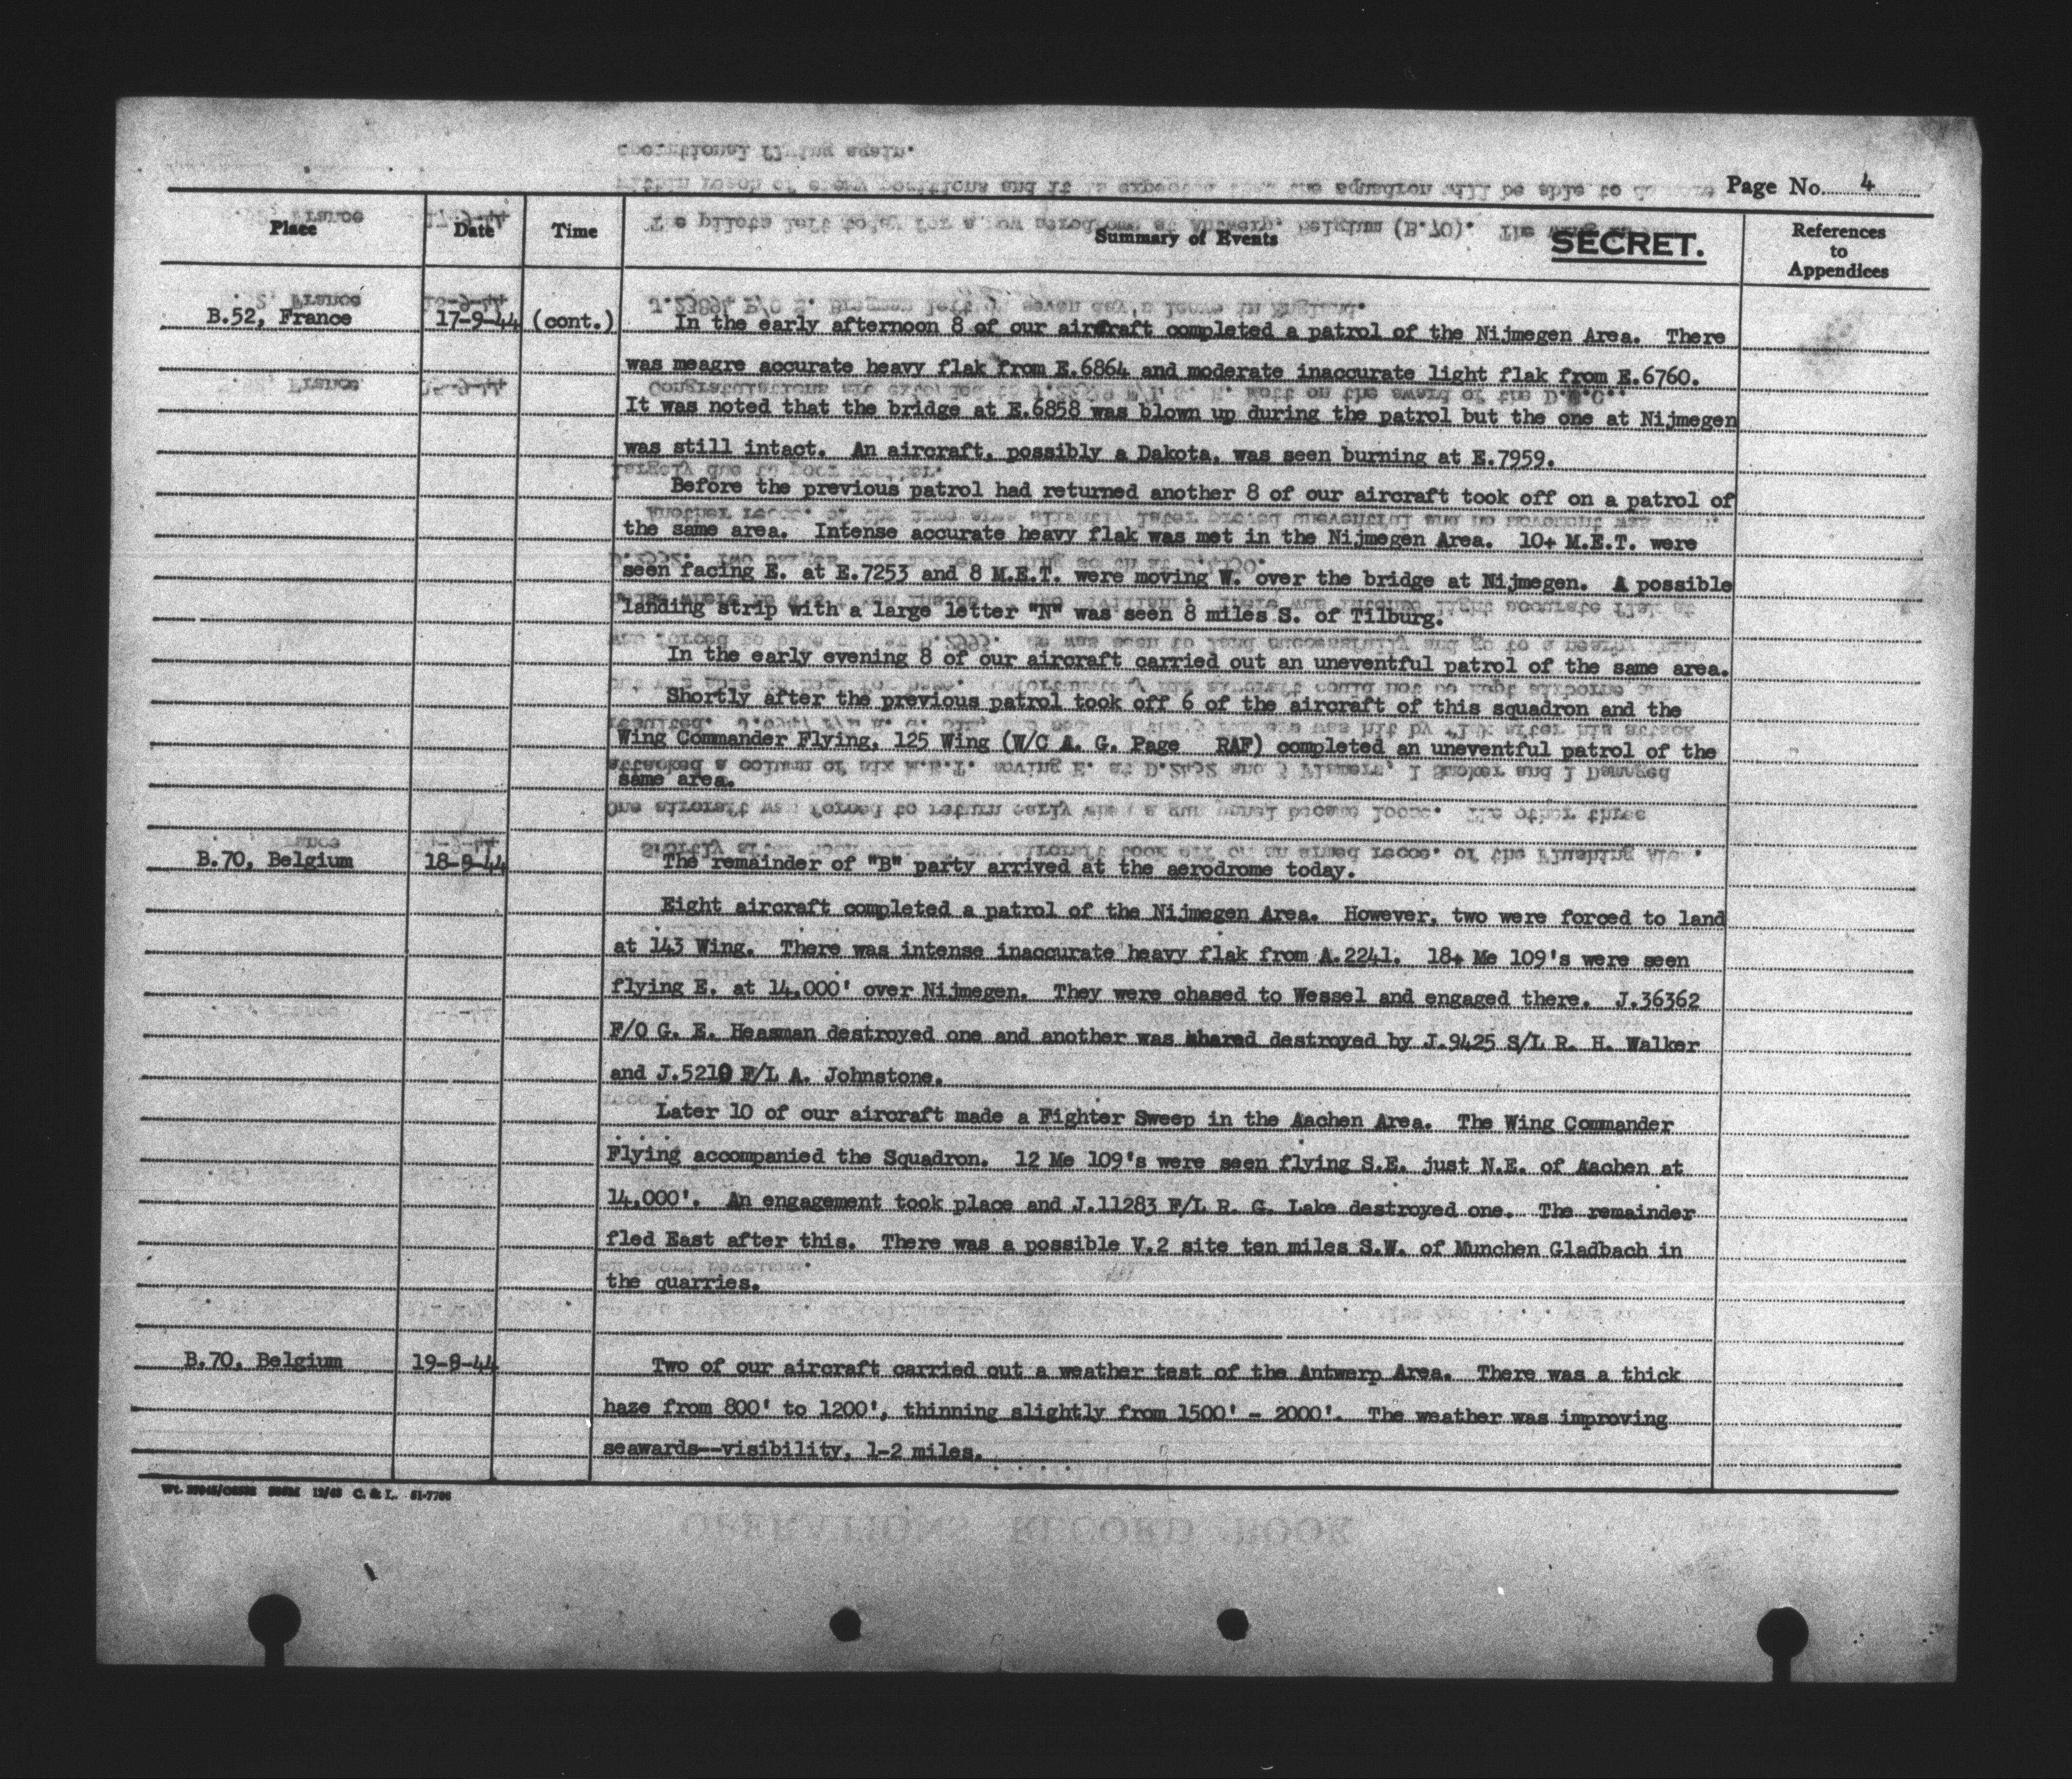 Page No. 4
Place Date Time Summary of Events SECRET. References to Appendices
B.52, France 17-9-44 (cont.) In the early afternoon 8 of our aircraft completed a patrol of the Nijmegen Area. There
was meagre accurate heavy flak from E.6864 and moderate inaccurate light flak from E.6760.
It was noted that the bridge at E.6858 was blown up during the patrol but the one at Nijmegen
was still intact. An aircraft, possibly a Dakota, was seen burning at E.7959.
Before the previous patrol had returned another 8 of our aircraft took off on a patrol of
the same area. Intense accurate heavy flak was met in the Nijmegen Area. 10+ M.E.T. were
seen facing E. at E.7253 and 8 M.E.T. were moving W. over the bridge at Nijmegen. A possible
landing strip with a large letter "N" was seen 8 miles S. of Tilburg.
In the early evening 8 of our aircraft carried out an uneventful patrol of the same area.
Shortly after the previous patrol took off 6 of the aircraft of this squadron and the
Wing Commander Flying, 125 Wing (W/C A. G. Page RAF) completed an uneventful patrol of the
same area.
B.70, Belgium 18-9-44 The remainder of "B" party arrived at the aerodrome today.
Eight aircraft completed a patrol of the Nijmegen Area. However, two were forced to land
at 143 Wing. There was intense inaccurate heavy flak from A.2241. 18+ Me 109's were seen
flying E. at 14,000' over Nijmegen. They were chased to Wessel and engaged there. J.36362
F/O G. E. Heasman destroyed one and another was shared destroyed by J.9425 S/L R. H. Walker
and J.5210 F/L A. Johnstone.
Later 10 of our aircraft made a Fighter Sweep in the Aachen Area. The Wing Commander
Flying accompanied the Squadron. 12 Me 109's were seen flying S.E. just N.E. of Aachen at
14,000'. An engagement took place and J.11283 F/L R. G. Lake destroyed one. The remainder
fled East after this. There was a possible V.2 site ten miles S.W. of Munchen Gladbach in
the quarries.
B.70, Belgium 19-9-44 Two of our aircraft carried out a weather test of the Antwerp Area. There was a thick
haze from 800' to 1200', thinning slightly from 1500' - 2000'. The weather was improving
seawards--visibility, 1-2 miles.
C. & L. 51-7706